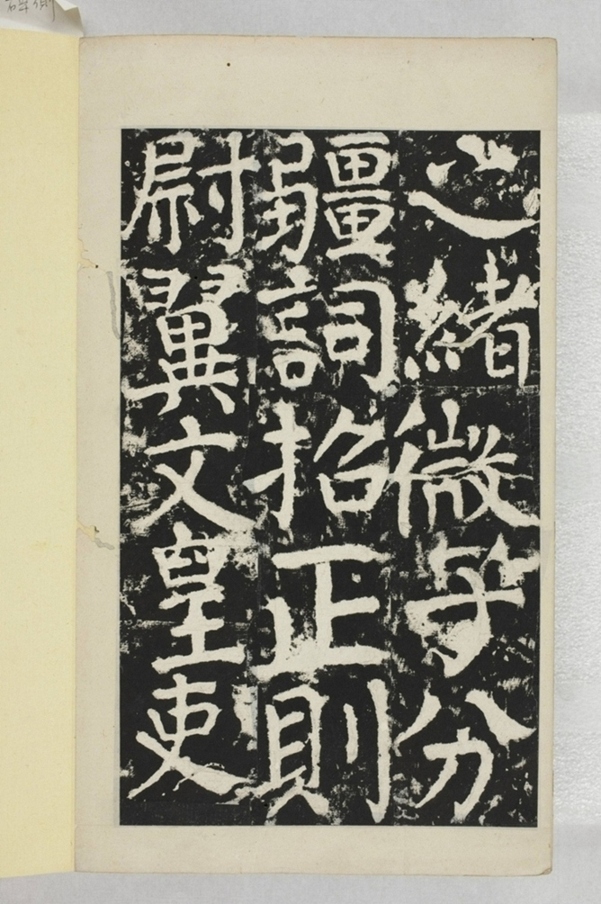 之緒微子分
疆詞招正則
尉翼文皇吏